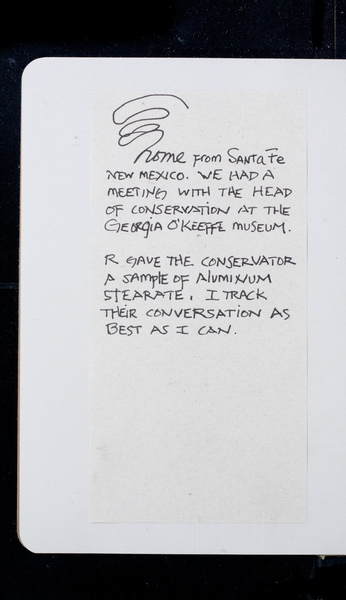 home from Santa Fe
New Mexico. We had a
meeting with the head
of conservation at the
Georgia O'Keeffe museum.
R gave the conservator
a sample of aluminum
stearate. I track
their conversation as
best as I can.